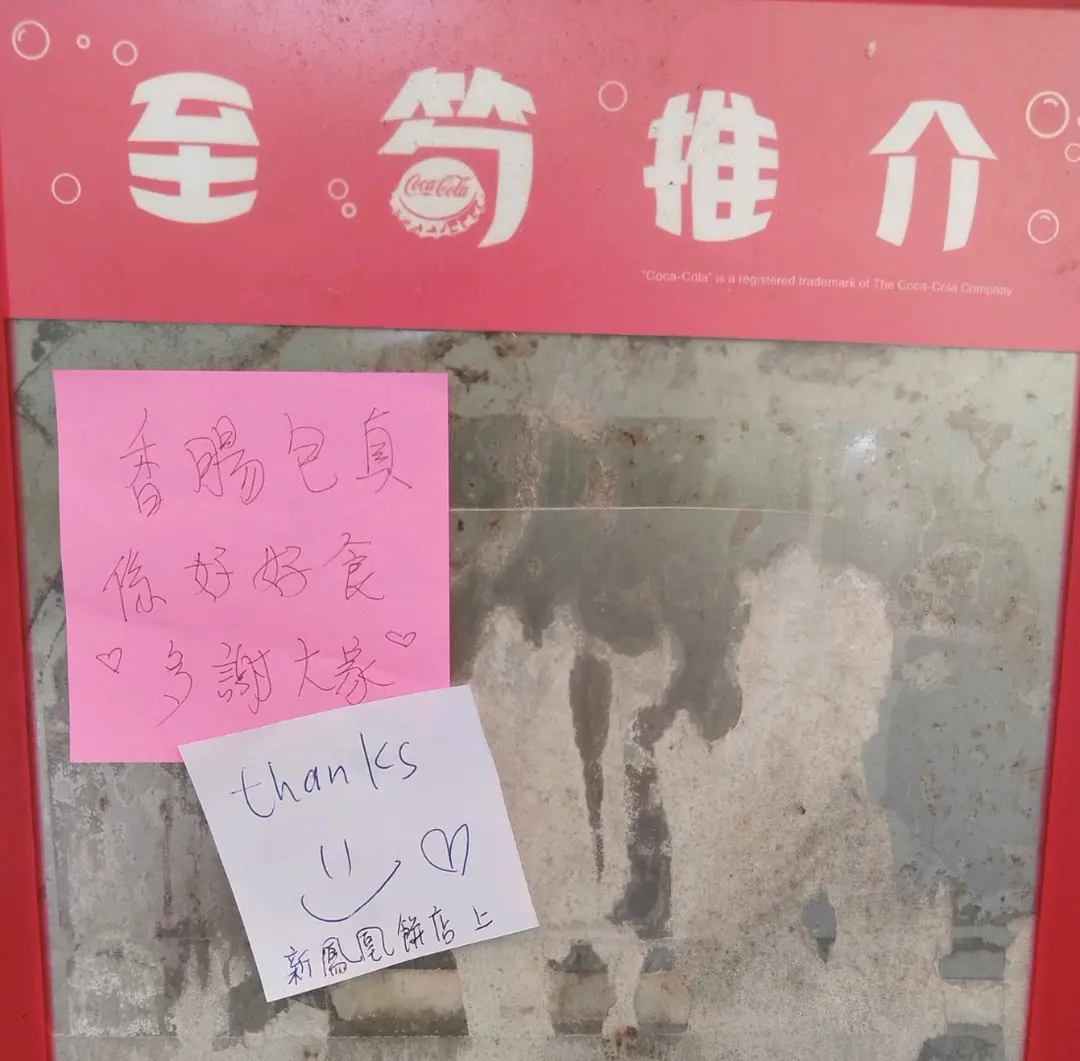 至筍推介
Coca-Cola
"Coca-Cola" is a registered trademark of The Coca-Cola Company
香腸包真
係好好食
多謝大家
thanks
新鳳凰餅店上